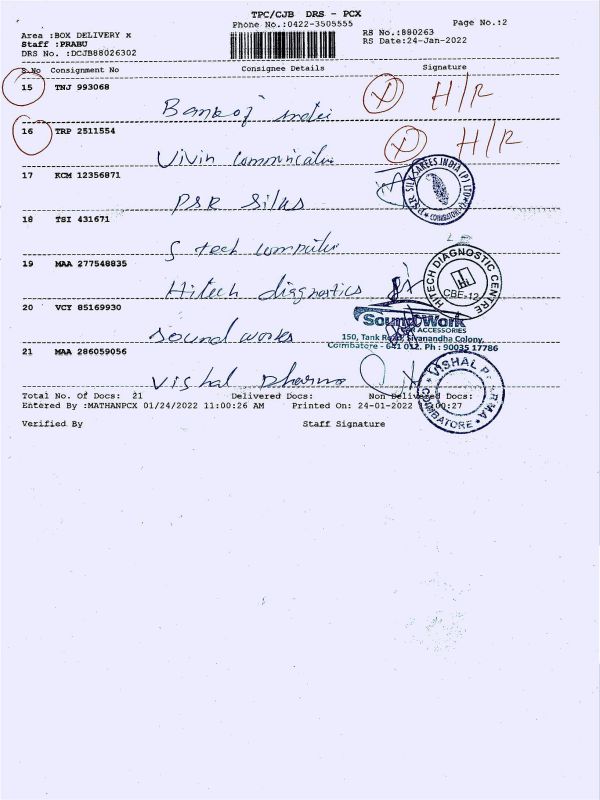 TPC/CJB DRS - PCX
Phone No.:0422-3505555
Page No.:2
Area :BOX DELIVERY x
Staff :PRABU
DRS No. :DCJB88026302
RS No.:880263
RS Date:24-Jan-2022
S.No Consignment No Consignee Details Signature
15 TNJ 993068
Bank of India
H/R
16 TRP 2511554
Vivin Communication
H/R
17 KCM 12356871
PSR Silks
P.S.R. SILK SAREES INDIA (P) LTD
COIMBATORE
18 TSI 431671
S tech computer
19 MAA 277548835
Hitech diagnostics
HITECH DIAGNOSTIC CENTRE
CBE-12
20 VCT 85169930
Sound works
Sound Work
ACCESSORIES
150, Tank Road, Sivanandha Colony,
Coimbatore - 641 012. Ph : 90035 17786
21 MAA 286059056
Vishal Pharma
VISHAL PHARMA
COIMBATORE
Total No. Of Docs: 21 Delivered Docs: Non Delivered Docs:
Entered By :MATHANPCX 01/24/2022 11:00:26 AM Printed On: 24-01-2022 11:00:27
Verified By Staff Signature